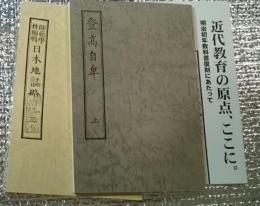 近代教育の原点、ここに。
明治初年教科書復刻にあたって
登高自卑
上
日本地誌略